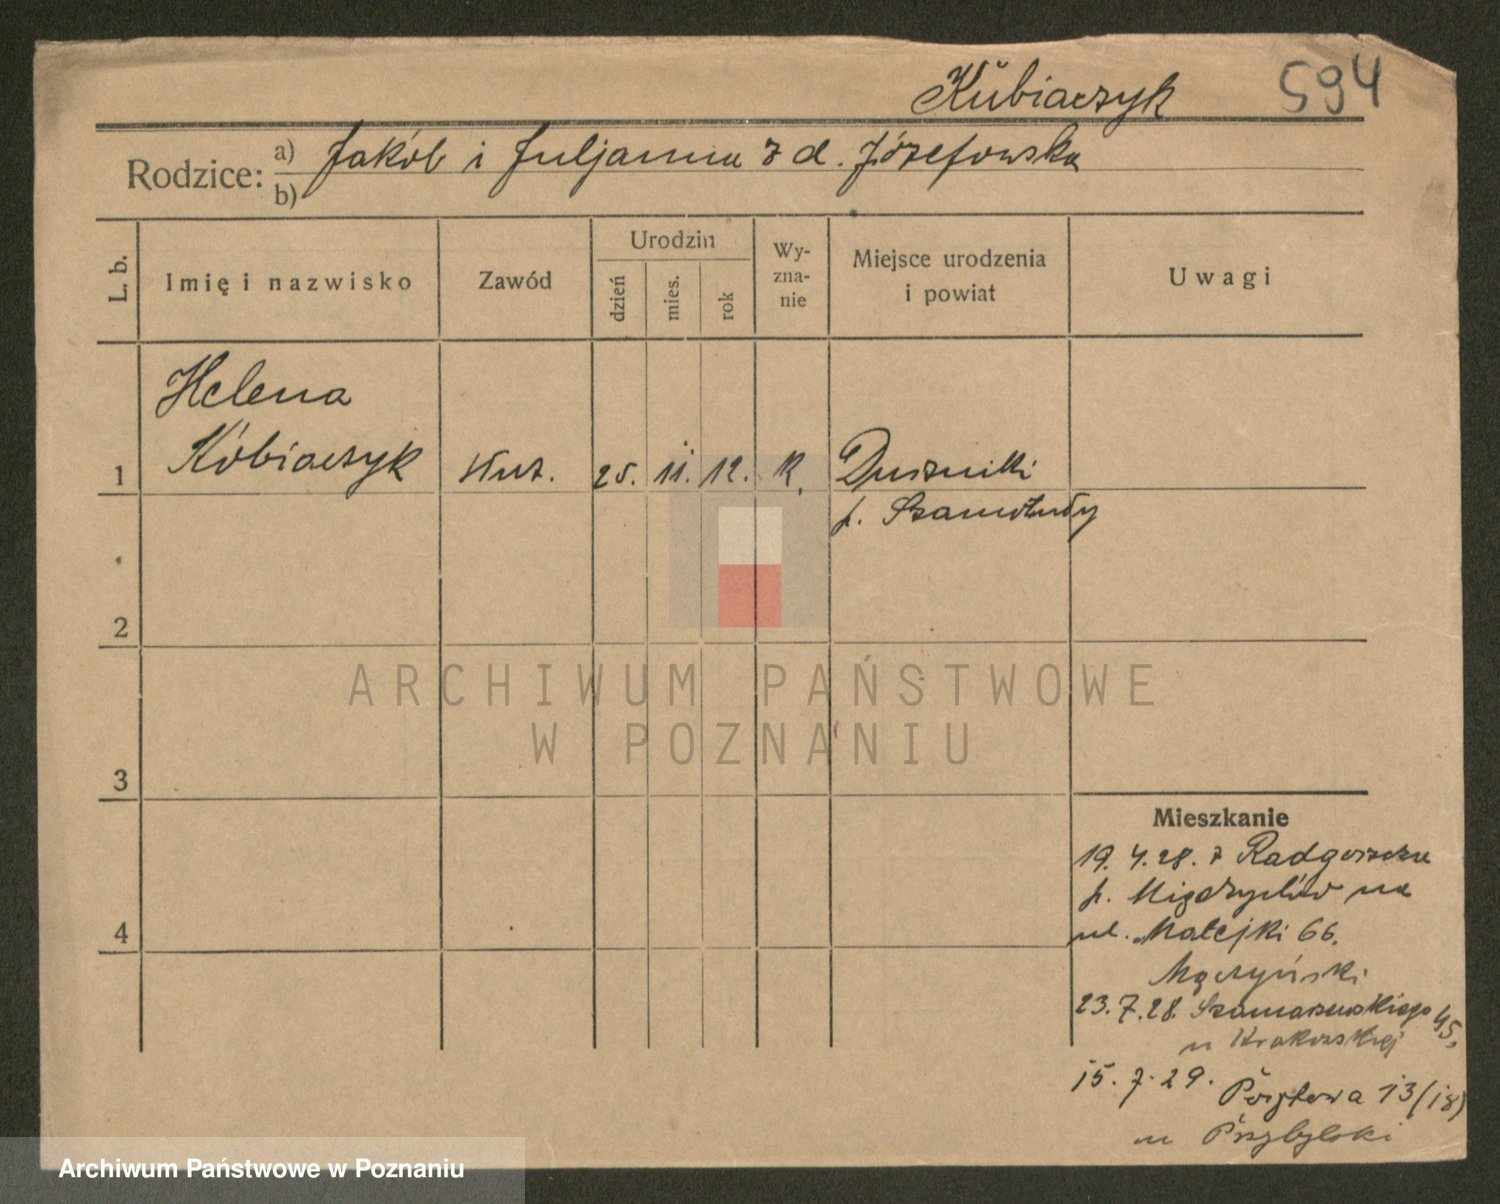 Kubiaczyk 594
Rodzice: a) Jakób i Juljanna z d. Józefowska
b)
L. b. Imię i nazwisko Zawód Urodzin dzień mies. rok Wy-zna-nie Miejsce urodzenia i powiat Uwagi
Helena
1 Kubiaczyk 25. 11. 12. K. Duszniki
p. Szamotuły
2
3
4
Mieszkanie
19. 4. 28. z
p. Międzychód na
ul. Matejki 66.
Mączyński
23. 7. 28. Szamarzewskiego 45,
u
15. 7. 29. 13 (18)
u Przybylski
ARCHIWUM PAŃSTWOWE
W POZNANIU
Archiwum Państwowe w Poznaniu